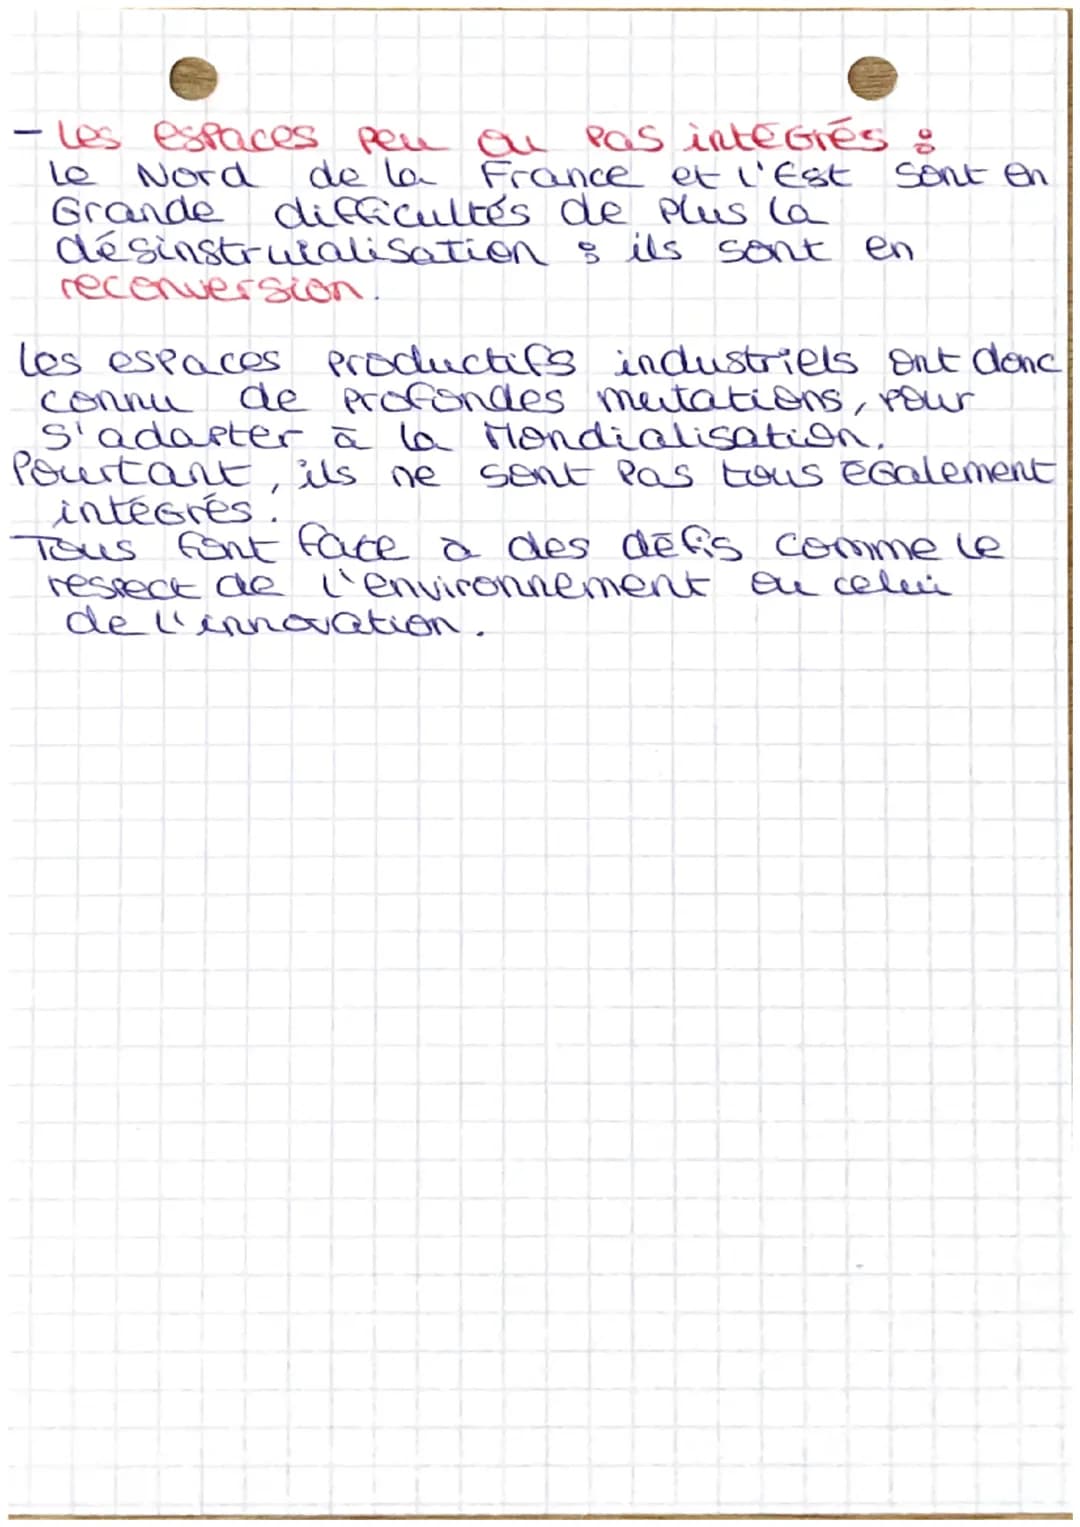 - Les espaces peu ou pas intégrés :
Le Nord de la France et l'Est sont en
Grande difficultés de plus la
désinstruialisation : ils sont en
reconversion.
Les espaces productifs industriels ont donc
connu de profondes mutations, pour
s'adapter à la Mondialisation.
Pourtant, ils ne sont pas tous également
intégrés.
Tous font face à des défis comme le
respect de l'environnement ou celui
de l'innovation.